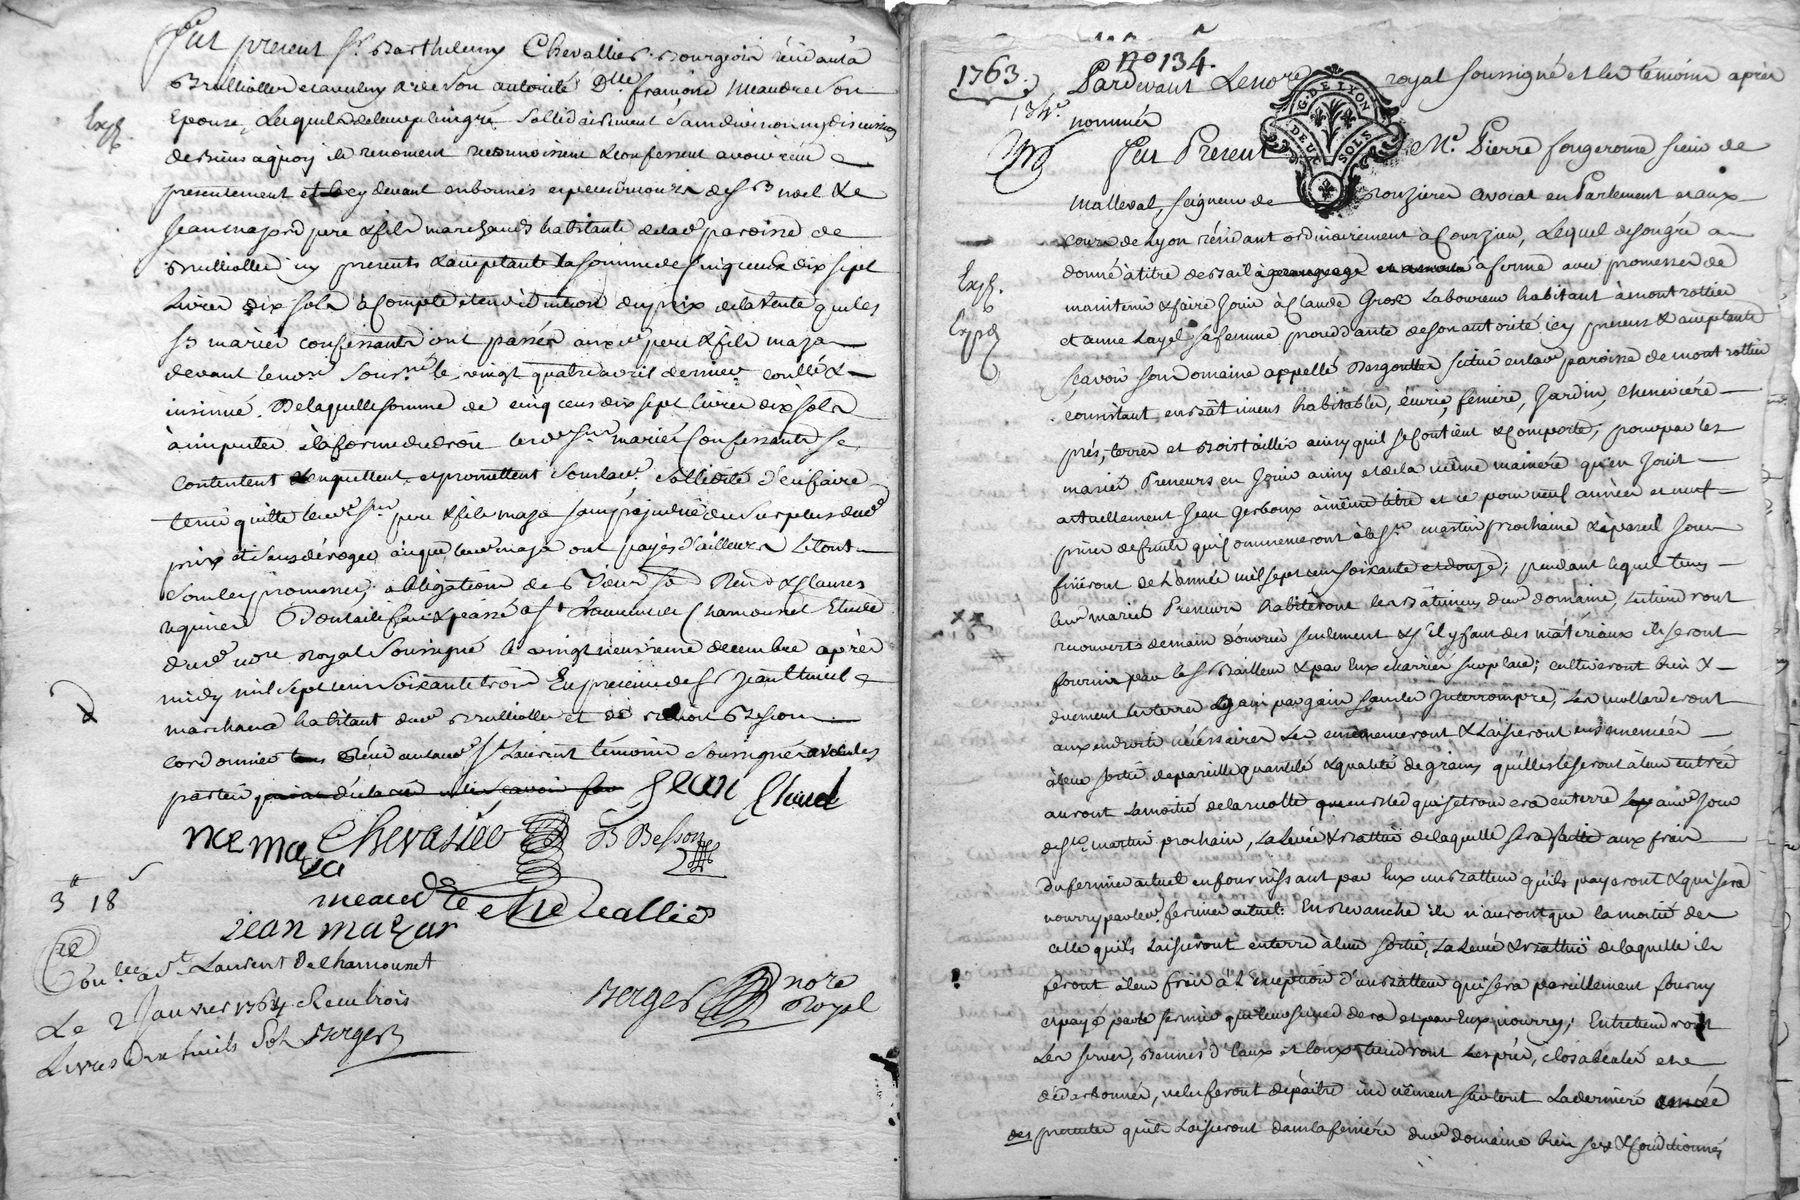 Fut present Sr Barthelemy Chevallier Bourgeois résidant à
Brulliolles et avec son autorité Dlle françoise Meaudre son
Expé.
Epouse, Lesquels de leur plein gré sollidairement sans division ny discussion
de biens a quoy ils renoncent reconnoissent & confessent avoir reçu
presentement et cy devant en bonnes especes de srs Noel &
Jean maza père & fils marchands habitants de lad. paroisse de
Brulliolles icy presents & acceptants la somme de cinq cents dix sept
Livres dix sols à compte et en déduction du prix de la vente que les
Srs mariés confessants ont passée aux d. pere & fils maza
devant le nore soussné le vingt quatre avril dernier controllé &
insinué. De laquelle somme de cinq cens dix sept livres dix sols
à imputer à la forme du droit lesd. srs mariés confessants se
contentent & en quittent et promettent sous lad. sollidité d'en faire
tenir quitte lesd. srs pere & fils maza sans préjudice du surplus dud.
prix et sans déroger à ce que lesd. maza ont payés d'ailleurs Le tout
sous les promesses, obligations de biens Rend & Clauses
requises Dont acte fait & passé a St Laurent de Chamousset Etude
dud. nore Royal Soussigné le vingt neuvieme decembre après
midy mil sept cent soixante trois En presence de Sr Jean
marchand habitant dud. Brulliolles et de Besson
cordonnier résidant aud. St Laurent témoins soussignés avec les
parties
noe maza
Chevallier
B Besson
meaudre chevallier
jean mazar
3tt 18s
Conllé a St Laurent De Chamousset
Le 2 Janvier 1764 Reçu trois
Livres dix huits Sols Berger
Berger nore Royal
1763.
No 134.
Pardevant Le nore royal soussigné et les témoins après
134e
nommés
G. DE LYON
DEUX SOLS
Fut Présent Mr Pierre fougerouse sieur de
Malleval, seigneur de Bouzieres avocat en Parlement et aux
cours de Lyon résidant ordinairement à Courzieu, Lequel de son gré a
donné à titre de bail à ferme avec promesses de
Expé.
maintenir & faire Jouir à Claude Gros Laboureur habitant à montrottier
Expé
et anne Layel sa femme procédante de son autorité icy présens & acceptants
sçavoir son Domaine appellé situé en lad. paroisse de montrottier
consistant en bâtimens habitables, écurie, feniere, Jardin, cheneviére
prés, terres et bois taillis ainsy qu'il se contient & comporte; pour par les
mariés Preneurs en Jouir ainsy et de la même maniere qu'en Jouit
actuellement Jean Gerboux à même titre et ce pour neuf années et neuf
prises de fruits qui commenceront à la St martin prochaine & à pareil Jour
finiront de L'année mil sept cens soixante et douze; pendant lequel tems
lesd. mariés Preneurs habiteront les bâtimens dud. domaine, Les tiendront
recouverts de main d'ouvrier seulement & s'il y faut des matériaux ils seront
fournis par led. Sr Bailleur & par Eux charriés sur place; cultiveront bien &
duement les terres de gain par gain sans les Interrompre, Les mollarderont
aux endroits nécessaires Les ensemenceront & Laisseront ensemencées
à leur sortie de pareille quantité & qualité de grains qu'elles le seront à leur entrée
auront La moitié de la récolte en bled qui se trouvera en terre aud. Jour
de St. martin prochain, La Levée & battue de laquelle sera faite aux frais
du fermier actuel en fournissant par Eux un batteur qu'ils payeront & qui sera
nourry par led. fermier actuel: En revanche ils n'auront que la moitié de
celle qu'ils Laisseront en terre à leur sortie, La Levée & battue de laquelle ils
feront à leur frais à L'exception d'un batteur qui sera pareillement fourny
et payé par le fermier qui leur succedera et par Eux nourry; Entretiendront
Les serves, bonnes d'Eaux et tiendront Les prés, clos et
, ne les feront depaitre induement surtout La derniere année
des qu'ils Laisseront dans la feniére dud. domaine bien secs & conditionnés